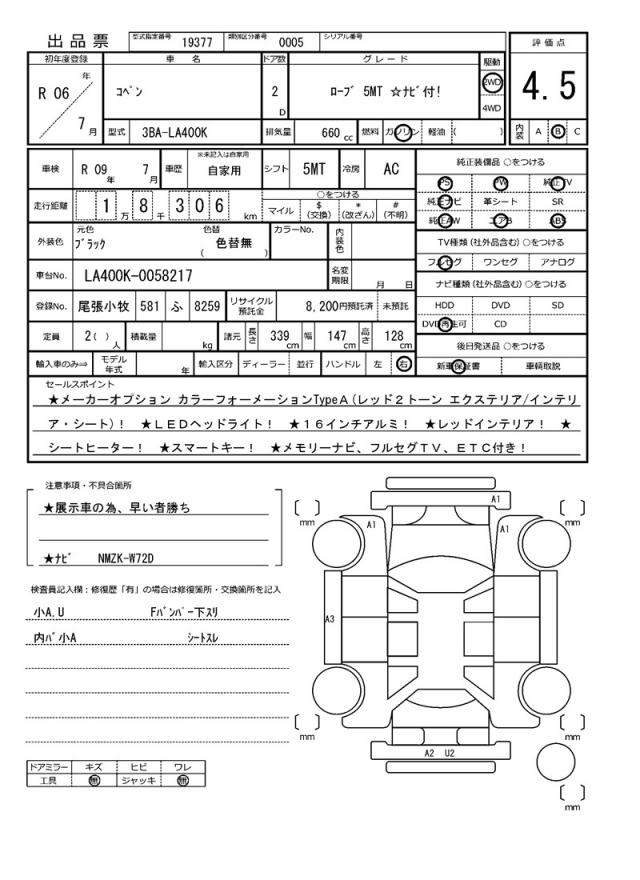 出品票 型式指定番号 19377 類別区分番号 0005 シリアル番号
評価点
4.5
初年度登録 車名 ドア数 グレード 駆動
R 06 年 7 月
コペン 2 D ローブ 5MT ☆ナビ付! 2WD 4WD
型式 3BA-LA400K 排気量 660 cc 燃料 ガソリン 軽油 ( )
内装 A B C
車検 R 09 年 7 月 車歴 ※未記入は自家用 自家用 シフト 5MT 冷房 AC
純正装備品 ○をつける
PS PW 純正TV
純正ナビ 革シート SR
純正AW エアB ABS
走行距離 1 万 8 千 3 0 6 km
○をつける
マイル $ (交換) * (改ざん) # (不明)
TV種類(社外品含む)○をつける
フルセグ ワンセグ アナログ
外装色 元色 ブラック 色替 ( 色替無 ) カラーNo. 内装色
ナビ種類(社外品含む)○をつける
HDD DVD SD
DVD再生可 CD
車台No. LA400K-0058217 名変期限 月 日
登録No. 尾張小牧 581 ふ 8259 リサイクル預託金 8,200円預託済 未預託
定員 2( ) 人 積載量 kg 諸元 長さ 339 cm 幅 147 cm 高さ 128 cm
後日発送品 ○をつける
新車保証書 車輌取説
輸入車のみ⇒ モデル年式 年 輸入区分 ディーラー 並行 ハンドル 左 右
セールスポイント
★メーカーオプション カラーフォーメーションTypeA(レッド2トーン エクステリア/インテリ
ア・シート)! ★LEDヘッドライト! ★16インチアルミ! ★レッドインテリア! ★
シートヒーター! ★スマートキー! ★メモリーナビ、フルセグTV、ETC付き!
注意事項・不具合箇所
★展示車の為、早い者勝ち
★ナビ NMZK-W72D
検査員記入欄:修復歴「有」の場合は修復箇所・交換箇所を記入
小A.U Fバンパー下スリ
内バ小A シートスレ
ドアミラー キズ ヒビ ワレ
工具 無 ジャッキ 無
A1
A1
A1
A3
A2 U2
mm
mm
mm
mm
mm